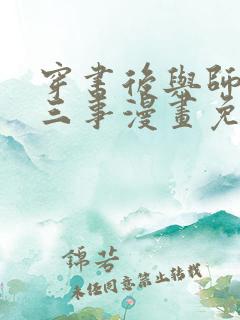 穿書後與師
三事漫畫免
錦芳
未任同意禁止转载